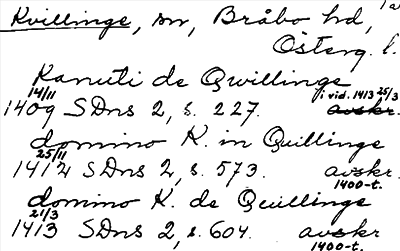 Kvillinge, sn, Bråbo hd,
Österg. l.
Kanuti de Qwillinge
14/11 i vid. 1413 25/3
1409 SDns 2, s. 227. avskr.
domino K. in Quillinge
25/11
1412 SDns 2, s. 573. avskr.
1400-t.
domino K. de Quillinge
21/3
1413 SDns 2, s. 604. avskr.
1400-t.